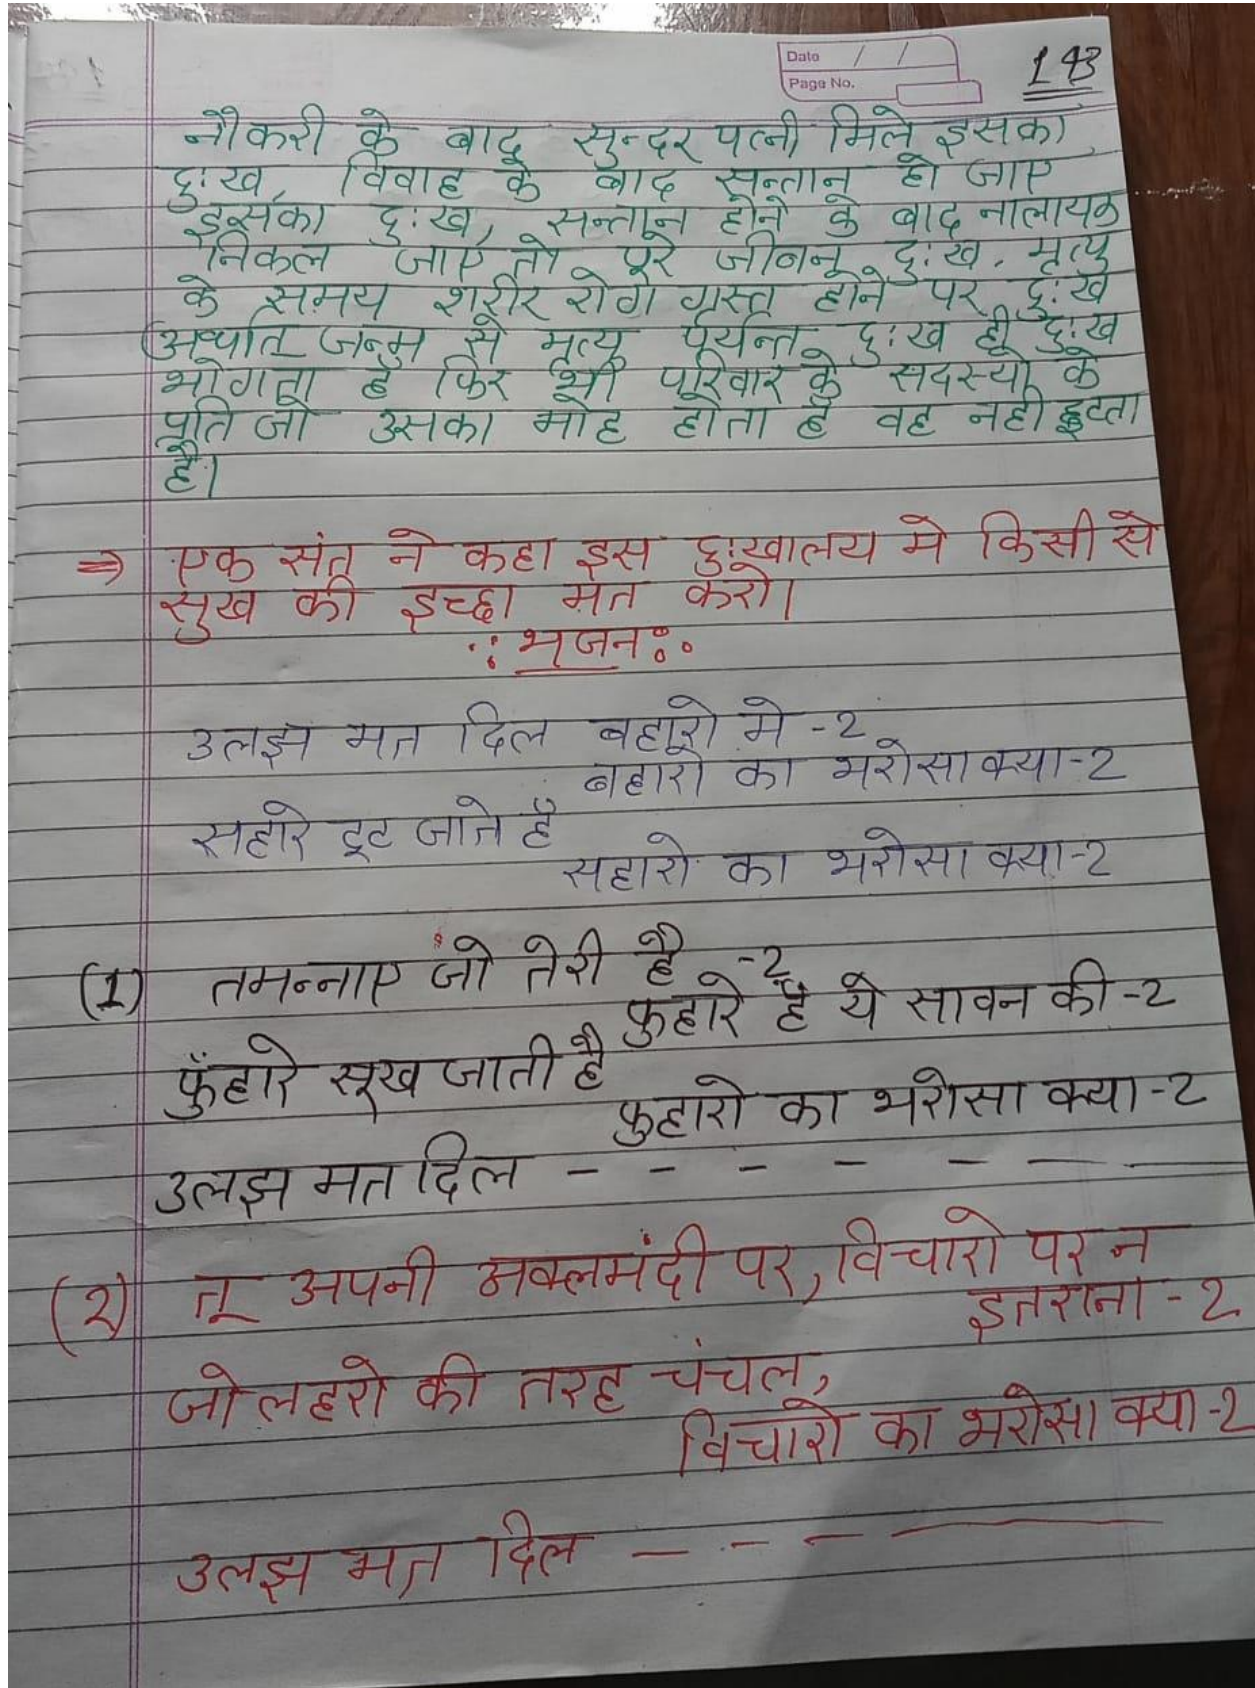 Date / /
Page No.
143
नौकरी के बाद सुन्दर पत्नी मिले इसका
दुःख, विवाह के बाद सन्तान हो जाए
इसका दुःख, सन्तान होने के बाद नालायक
निकल जाए तो पूरे जीवन दुःख, मृत्यु
के समय शरीर रोग ग्रस्त होने पर दुःख
अर्थात जन्म से मृत्यु पर्यन्त दुःख ही दुःख
भोगता है फिर भी परिवार के सदस्यो के
प्रति जो उसका मोह होता है वह नही छूटता
है।
⇒ एक संत ने कहा इस दुःखालय मे किसी से
सुख की इच्छा मत करो।
∴ भजन ∴
उलझ मत दिल बहारो मे -2
बहारो का भरोसा क्या-2
सहारे टूट जाते है
सहारो का भरोसा क्या-2
(1) तमन्नाए जो तेरी है -2
फुहारे है ये सावन की -2
फुँहारे सूख जाती है
फुहारो का भरोसा क्या-2
उलझ मत दिल - - - - - - -
(2) तू अपनी अक्लमंदी पर, विचारो पर न
इतराना - 2
जो लहरो की तरह चंचल,
विचारो का भरोसा क्या-2
उलझ मत दिल - - - -